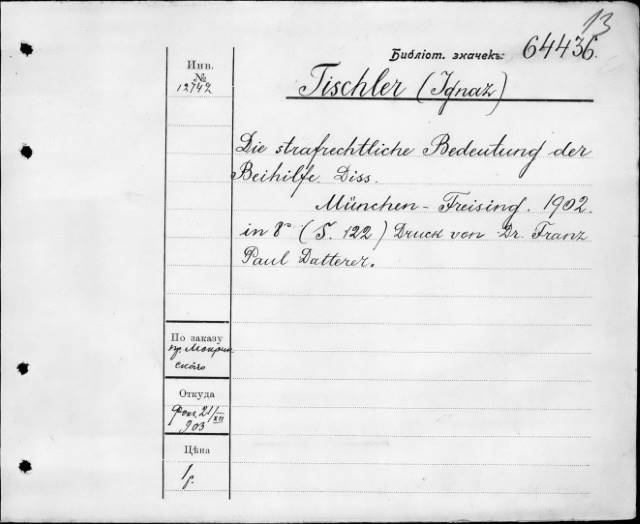 13
Библіот. значекъ: 64436.
Инв.
№
12742
Tischler (Ignaz)
Die strafrechtliche Bedeutung der
Beihilfe. Diss.
München - Freising. 1902.
in 8° (S. 122) Druck von Dr. Franz
Paul Datterer.
По заказу
пр. Мокрин
скаго
Откуда
Фокъ 21/XII
903
Цѣна
1 р.